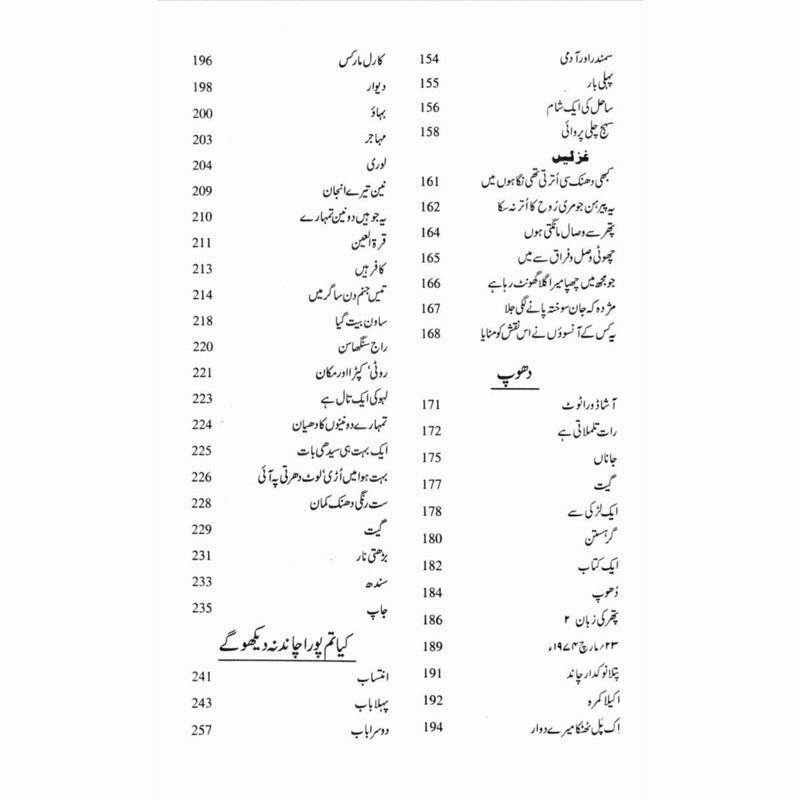 سمندر اور آدمی 154
پہلی بار 155
ساحل کی ایک شام 156
سہج چلی پروائی 158
غزلیں
کبھی دھنک سی اُترتی تھی نگاہوں میں 161
یہ پیرہن جو مری رُوح کا اُتر نہ سکا 162
پتھر سے وصال مانگتی ہوں 164
چھوٹی وصل و فراق سے میں 165
جو مجھ میں چھپا میرا گلا گھونٹ رہا ہے 166
مژدہ کہ جان سوختہ پانے لگی جلا 167
یہ کس کے آنسوؤں نے اس نقش کو مٹایا 168
دھوپ
آشا ڈورا ٹوٹ 171
رات تلملاتی ہے 172
جاناں 175
گیت 177
ایک لڑکی سے 178
گرہستن 180
ایک کتاب 182
دُھوپ 184
پتھر کی زبان ۲ 186
۲۳/مارچ ۱۹۷۴ء 189
پتلا نوکدار چاند 191
اکیلا کمرہ 192
اِک پَل ٹھٹکا میرے دوار 194
کارل مارکس 196
دیوار 198
بہاؤ 200
مہاجر 203
لوری 204
نین تیرے انجان 209
یہ جو ہیں دو نین تمہارے 210
قرۃ العین 211
کافر ہیں 213
تیس جنم دن ساگر میں 214
ساون بیت گیا 218
راج سنگھاسن 220
روٹی‘ کپڑا اور مکان 221
لہو کی ایک تال ہے 223
تمہارے دو نینوں کا دھیان 224
ایک بہت ہی سیدھی بات 225
بہت ہوا میں اُڑی‘ لوٹ دھرتی پہ آئی 226
ست رنگی دھنک کمان 228
گیت 229
بڑھتی نار 231
سندھ 233
جاپ 235
کیا تم پورا چاند نہ دیکھو گے
انتساب 241
پہلا باب 243
دوسرا باب 257